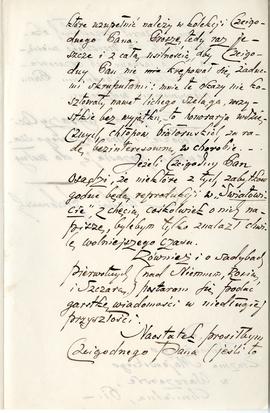 które uzupełnić należy w kolekcji Czcigodnego Pana. Proszę tedy raz jeszcze i z całą usilnością, aby Czcigodny Pan nie krępował się żadnymi skrupułami: mnie te okazy nie kosztowały nawet lichego szeląga, wszystkie bez wyjątku, to honorarja wdzięcznych chłopów białoruskich, za radę bezinteresowną w chorobie. —
Jeżeli Czcigodny Pan
osądzi, że niektóre z tych zabytków
godne będą reprodukcji w „Światowicie" z chęcią cośkolwiek o niej napiszę, bylebym tylko znalazł chwilę wolniejszego czasu.
Również i o sadybach
pierwotnych nad Niemnem,
i Szczarą, postaram się podać
garstkę wiadomości w niedługiej
przyszłości.
Naostatek prosiłbym
Czcigodnego Pana (jeśli to